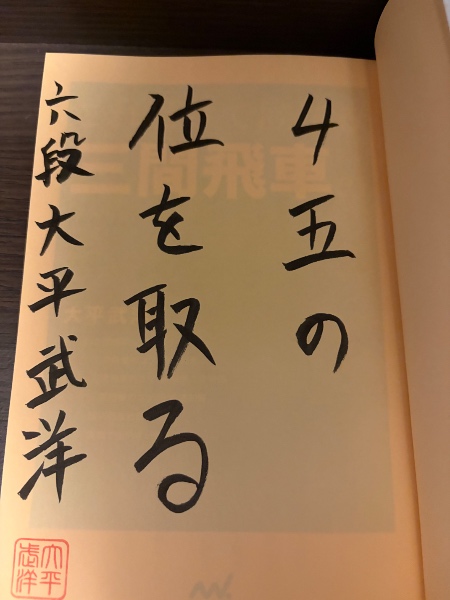 4五の
位を取る
六段大平武洋
大平
武洋
三間飛車